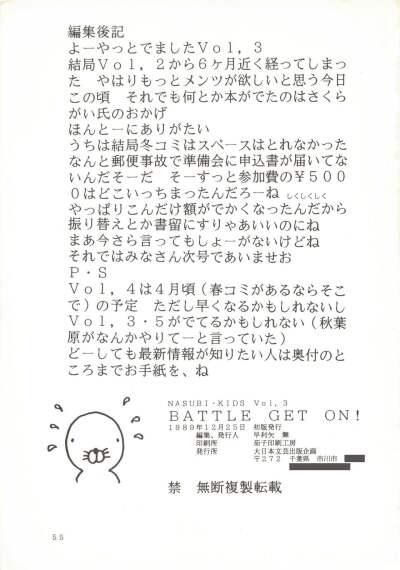 編集後記
よーやっとでましたＶｏｌ，３
結局Ｖｏｌ，２から６ヶ月近く経ってしまっ
た　やはりもっとメンツが欲しいと思う今日
この頃　それでも何とか本がでたのはさくら
がい氏のおかげ
ほんとーにありがたい
うちは結局冬コミはスペースはとれなかった
なんと郵便事故で準備会に申込書が届いてな
いんだそーだ　そーすっと参加費の￥５００
０はどこいっちまったんだろーね しくしくしく
やっぱりこんだけ額がでかくなったんだから
振り替えとか書留にすりゃあいいのにね
まあ今さら言ってもしょーがないけどね
それではみなさん次号であいませお
Ｐ・Ｓ
Ｖｏｌ，４は４月頃（春コミがあるならそこ
で）の予定　ただし早くなるかもしれないし
Ｖｏｌ，３・５がでてるかもしれない（秋葉
原がなんかやりてーと言っていた）
どーしても最新情報が知りたい人は奥付のと
ころまでお手紙を、ね
NASUBI・KIDS Vol,3
BATTLE GET ON!
1989年12月25日　初版発行
編集、発行人　早利矢　無
印刷所　茄子印刷工房
発行所　大日本文芸出版企画
〒272　千葉県　市川市
禁　無断複製転載
55